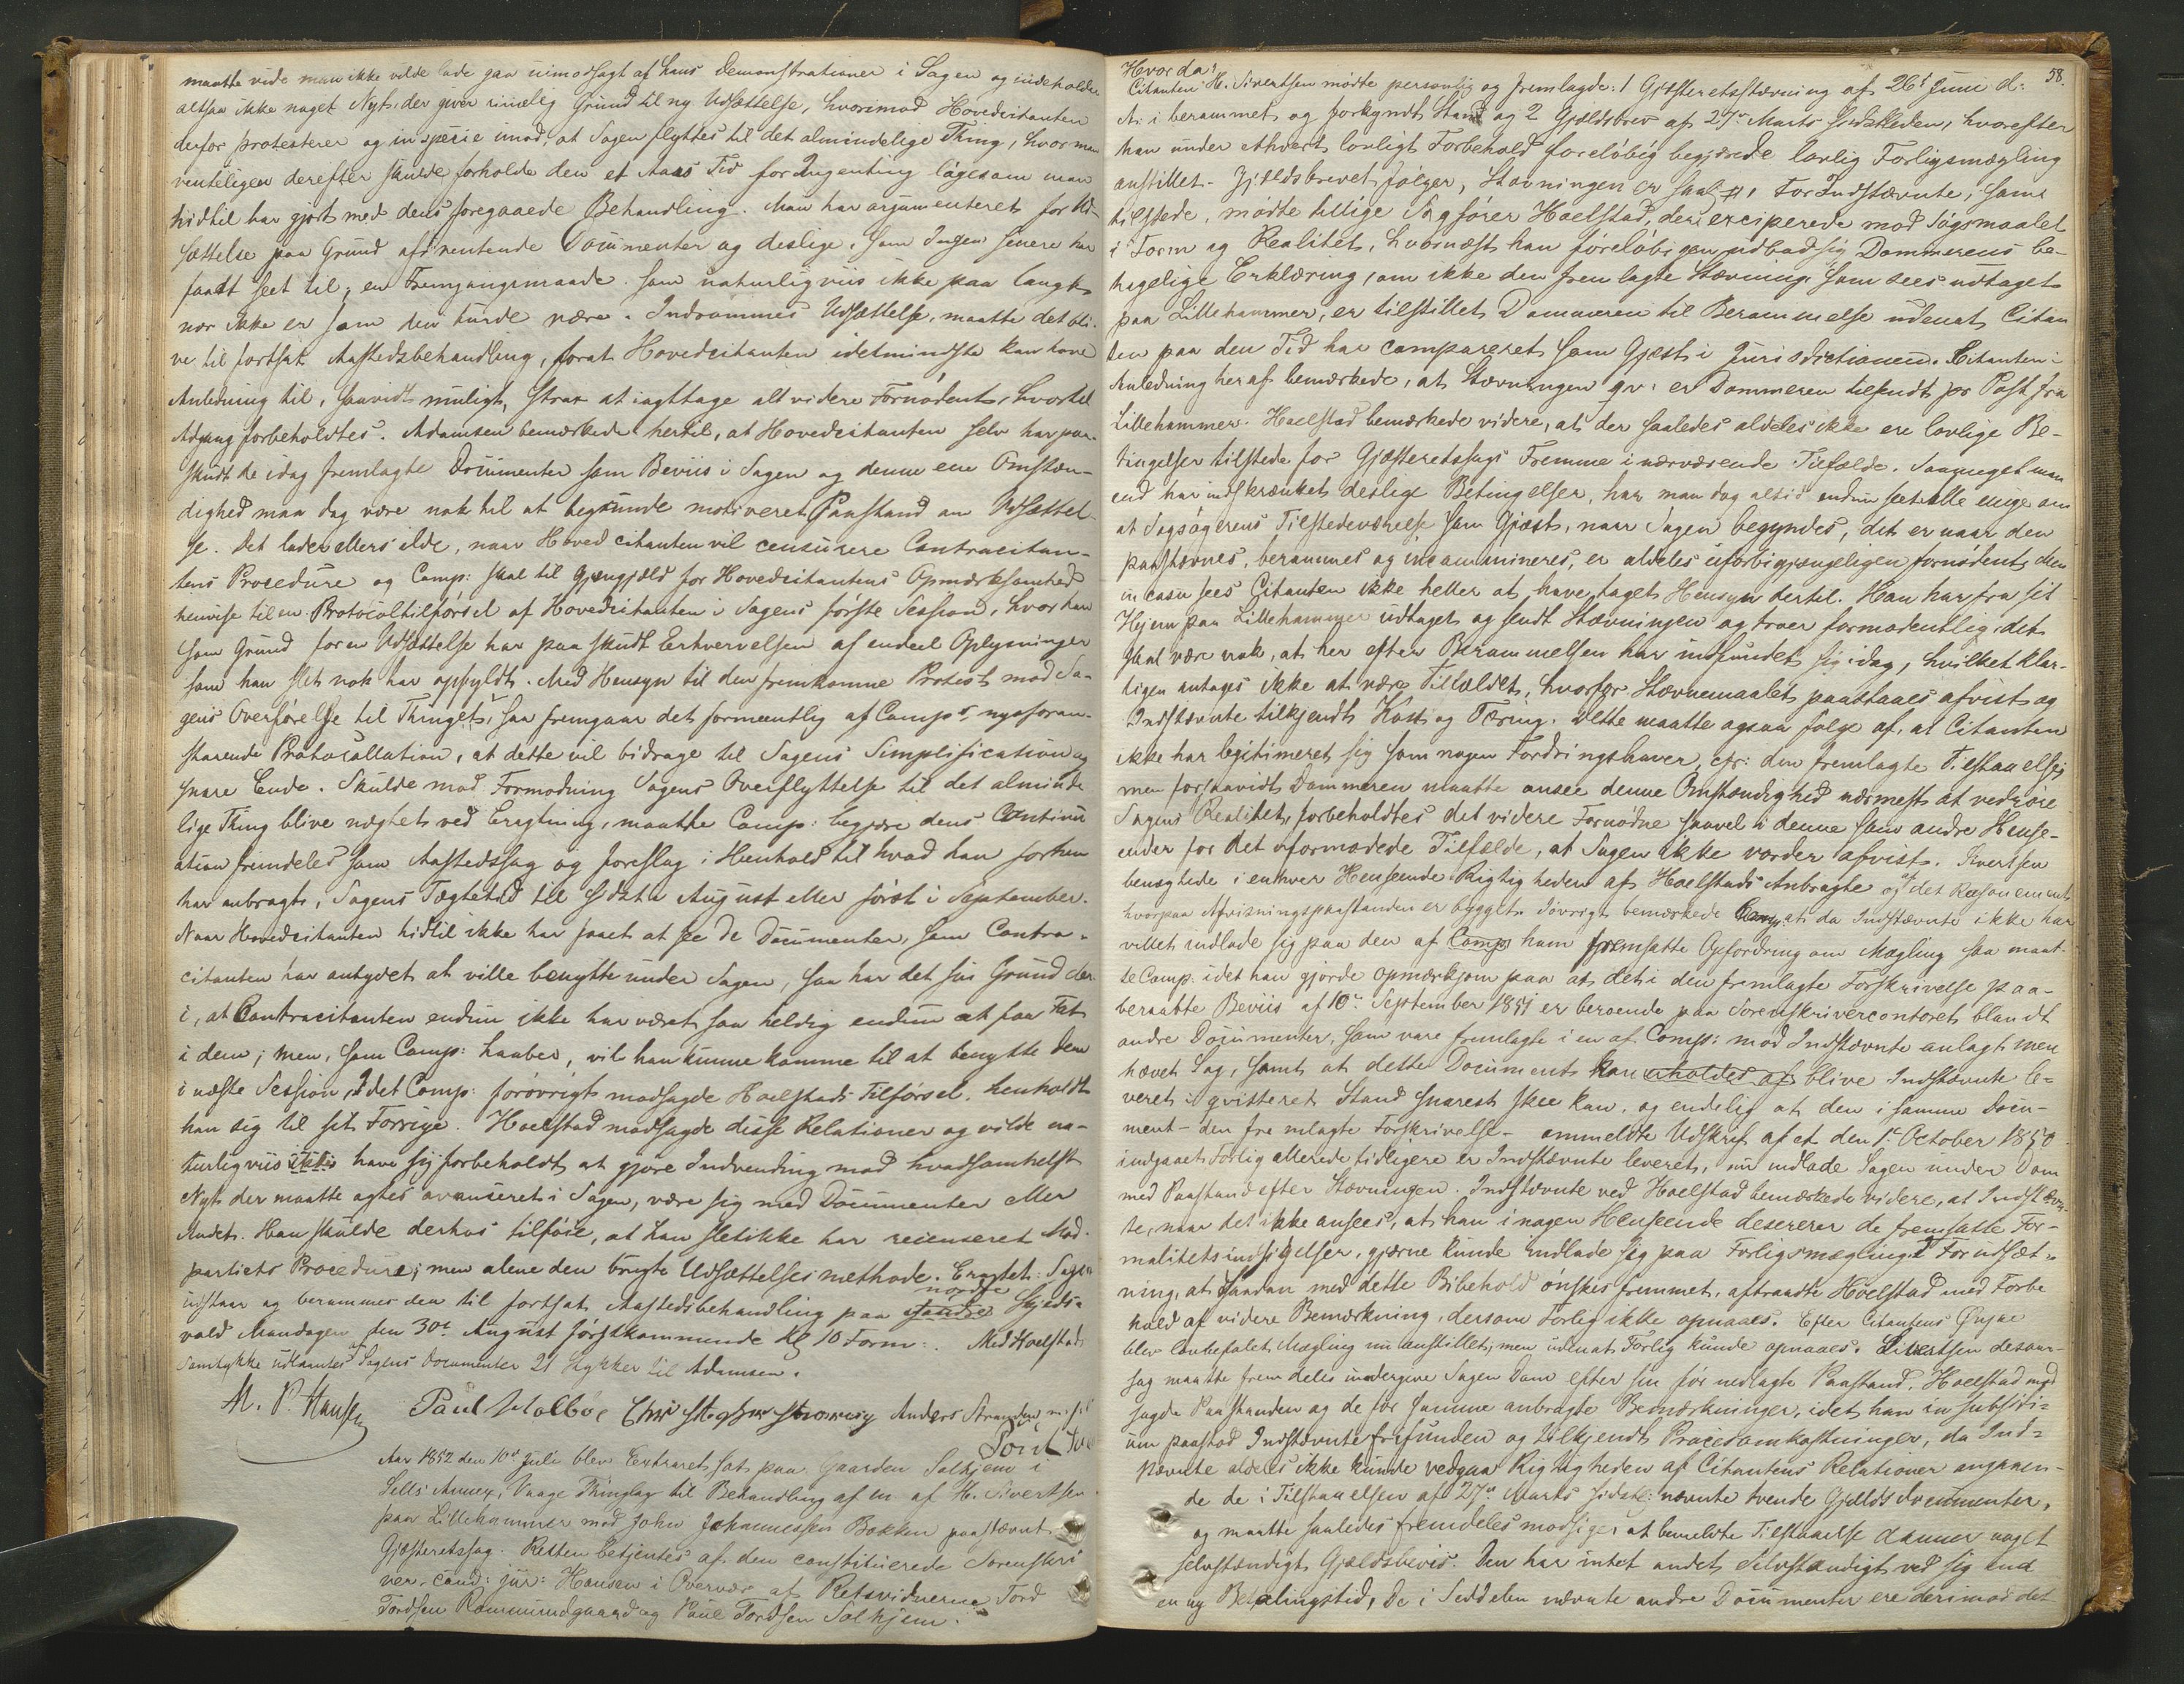 maatte vide man ikke vilde lade gaa uimodsagt af hans Demonstrationer i Sagen og indeholder
altsaa ikke noget Nyt, der giver rimelig Grund til ny Udsættelse, hvorimod Hovedcitanten
derfor protesterer og in specie imod, at Sagen flyttes til det almindelige Thing, hvor man
venteligen derefter skulde forholde den et Aars Tid for Ingenting ligesom man
hidtil har gjort med dens foregaaede Behandling. Man har argumenteret for Ud-
sættelse paa Grund af ventende Documenter og deslige, som Ingen senere har
faaet seet til, en Fremgangsmaade som naturligviis ikke paa langt
nær ikke er som den burde være. Indrømmes Udsættelse, maatte det bli-
ve til fortsat Aastedsbehandling, forat Hovedcitanten idetmindste kan have
Anledning til, saavidt muligt, strax at iagttage alt videre Fornødent, hvortil
Adgang forbeholdtes. Adamsen bemærkede hertil, at Hovedcitanten selv har paa-
skudt de idag fremlagte Documenter som Beviis i Sagen og denne ene Omstæn-
dighed maa dog være nok til at begrunde motiveret Paastand om Udsættel-
se. Det lader ellers ilde, naar Hovedcitanten vil censurere Contracitan-
tens Procedure og Comp: skal til Gjengjæld for Hovedcitantens Opmærksomhed
henvise til en Protocoltilførsel af Hovedcitanten i Sagens første Session, hvor han
som Grund for en Udsættelse har paaskudt Erhvervelsen af endeel Oplysninger
som han slet nok har opfyldt. Med Hensyn til den fremkomne Protest mod Sa-
gens Overførelse til Thinget, saa fremgaar det formeentlig af Comps nysforan-
staaende Protocollation, at dette vil bidrage til Sagens Simplification og
snare Ende. Skulde mod Formodning Sagens Overflyttelse til det alminde
lige Thing blive nægtet ved Eragtning, maatte Comp: begjære dens Continu
ation fremdeles som Aastedssag og foreslog i Henhold til hvad han forhen
har anbragt, Sagens Tægtetid til sidst i August eller først i September.
Naar Hovedcitanten hidtil ikke har faaet at see de Documenter, som Contra-
citanten har antydet at ville benytte under Sagen, saa har det sin Grund der
i, at Contracitanten endnu ikke har været saa heldig endnu at faa Fat
i dem; men, som Comp: haaber, vil han kunne komme til at benytte dem
i næste Session, Idet Comp: forøvrigt modsagde Hoelstads Tilførsel, henholdt
han sig til sit Forrige. Hoelstad modsagde disse Relationer og vilde na-
turligviis ikke have sig forbeholdt at gjøre Indvending mod hvadsomhelst
Nyt der maatte agtes avanceret i Sagen, være sig med Documenter eller
Andet. Han skulde derhos tilføie, at han sletikke har recenseret Mod-
partiets Procedure; men alene den brugte Udsættelsesmethode. Eragtet: Sagen
udstaar og berammes den til fortsat Aastedsbehandling paa nordre
vold Mandagen den 30te August førstkommende Kl 10 Form:. Med Hoelstads
Samtykke udlaantes af Sagens Documenter 21 Stykker til Adamsen.
M. P. Hansen Paul Holbøe Anders
Aar 1852 den 10de Juli blev Extraret sat paa Gaarden Solhjem i
Sells Annex, Vaage Thinglag til Behandling af en af H. Sivertsen
paa Lillehammer mod John Johannessen Bakken paastævnt
Gjæsteretssag. Retten betjentes af den constituerede Sorenskri
ver, cand: jur: Hansen i Overvær af Retsvidnerne Tord
Tordsen Rommundgaard og Paul Tordsen Solhjem.
58.
Hvor da:
Citanten H. Sivertsen mødte personlig og fremlagde: 1 Gjæsteretsstævning af 26de Juni d:
A: i berammet og forkyndt Stand og 2 Gjældsbrev af 27de Marts sidstleden, hvorefter
han under ethvert lovligt Forbehold foreløbig begjærede lovlig Forligsmægling
anstillet. Gjældsbrevet følger, Stævningen er saal: For Indstævnte, som
tilstede, mødte tillige Sagfører Hoelstad, der exciperede mod Søgsmaalet
i Form og Realitet, hvornæst han foreløbigen udbad sig Dommerens be-
hagelige Erklæring, om ikke den fremlagte Stævning, som sees udtaget
paa Lillehammer, er tilstillet Dommeren til Berammelse udenat Citan
ten paa den Tid har compareret som Gjæst i Jurisdictionen. Citanten i
Anledning heraf bemærkede, at Stævningen qv: er Dommeren tilsendt pr Post fra
Lillehammer. Hoelstad bemærkede videre, at der saaledes aldeles ikke ere lovlige Be-
tingelser tilstede for Gjæsteretssags Fremme i nærværende Tilfælde. Saameget man
end har indskrænket deslige Betingelser, har man dog altid endnu seet alle enige om
at Sagsøgerens Tilstedeværelse som Gjæst, naar Sagen begyndes, det er naar den
paastævnes, berammes og incamineres, er aldeles uforbigjængeligen fornødent, men
in casu sees Citanten ikke heller at have taget Hensyn dertil. Han har fra sit
Hjem paa Lillehammer udtaget og sendt Stævningen og troer formodentlig, det
skal være nok, at han efter Berammelsen har indfundet sig idag, hvilket klar-
ligen antages ikke at være Tilfældet, hvorfor Stævnemaalet paastaaes afvist og
Indstævnte tilkjendt Kost og Tæring. Dette maatte ogsaa følge af, at Citanten
ikke har legitimeret sig som nogen Fordringshaver, cfr: den fremlagte Tilstaaelse;
men forsaavidt Dommeren maatte ansee denne Omstændighed nærmest at vedrøre
Sagens Realitet, forbeholdtes det videre Fornødne saavel i denne som andre Hense-
ender for det uformodede Tilfælde, at Sagen ikke vorder afvist. Sivertsen
benægtede i enhver Henseende Rigtigheden af Hoelstads Anbragte og af det Ræsonement
hvorpaa Afvisningspaastanden er bygget. Iøvrigt bemærkede Comp: at da Indstævnte ikke har
villet indlade sig paa den af Comp: ham fremsatte Opfordring om Mægling saa maat-
te Comp: idet han gjorde opmærksom paa at det i den fremlagte Forskrivelse paa-
beraabte Beviis af 10de September 1851 er beroende paa Sorenskrivercontoret blandt
andre Documenter, som vare fremlagte i en af Comp: mod Indstævnte anlagt men
hævet Sag, samt at dette Document kan blive Indstævnte le-
veret i qvitteret Stand snarest skee kan, og endelig at den i samme Docu-
ment - den fremlagte Forskrivelse - ommeldte Udskrift af et den 1ste October 1850
indgaaet Forlig allerede tidligere er Indstævnte leveret, nu indlade Sagen under Dom
med Paastand efter Stævningen. Indstævnte ved Hoelstad bemærkede videre, at Indstævn-
te, naar det ikke ansees, at han i nogen Henseende desererer de fremsatte For-
malitetsindsigelser, gjærne kunde indlade sig paa Forligsmægling. I Forudsæt-
ning, at saadan med dette Bibehold ønskes fremmet, aftraadte Hoelstad med Forbe
hold af videre Bemærkning, dersom Forlig ikke opnaaes. Efter Citantens Ønske
blev lovbefalet Mægling nu anstillet; men udenat Forlig kunde opnaaes. Sivertsen desaar-
sag maatte fremdeles undergive Sagen Dom efter sin før nedlagte Paastand. Hoelstad mod
sagde Paastanden og de for samme anbragte Bemærkninger, idet han in subsidi-
um paastod Indstævnte frifunden og tilkjendt Procesomkostninger, da Ind-
stævnte aldeles ikke kunde vedgaa Rigtigheden af Citantens Relationer angaaen-
de de i Tilstaaelsen af 27de Marts sidstl: nævnte tvende Gjældsdocumenter,
og maatte saaledes fremdeles modsige, at bemeldte Tilstaaelse danner noget
selvstændigt Gjældsbevis. Den har intet andet Selvstændigt ved sig end
en ny Betalingstid, De i Seddelen nævnte andre Documenter ere derimod det